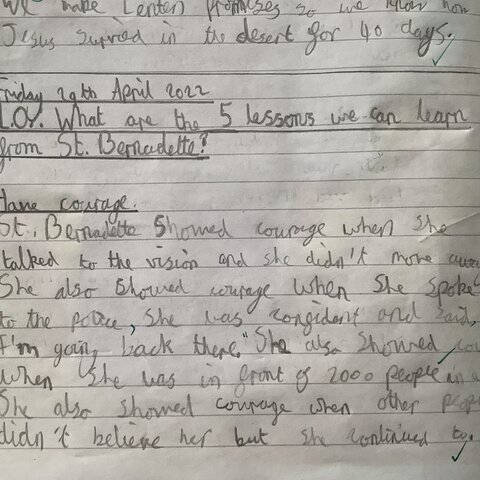 We make Lenten promises so we know how
Jesus survied in the desert for 40 days.
Friday 29th April 2022
L.O/. What are the 5 lessons we can learn
from St. Bernadette?
Have courage.
St. Bernadette showed courage when she
talked to the vision and she didn't move away
She also showed courage when she spoke
to the police, she was congident and said,
I'm going back there." She also showed cou
when she was in front of 2000 people in a
She also showed courage when other peop
didn't believe her but she continued to.